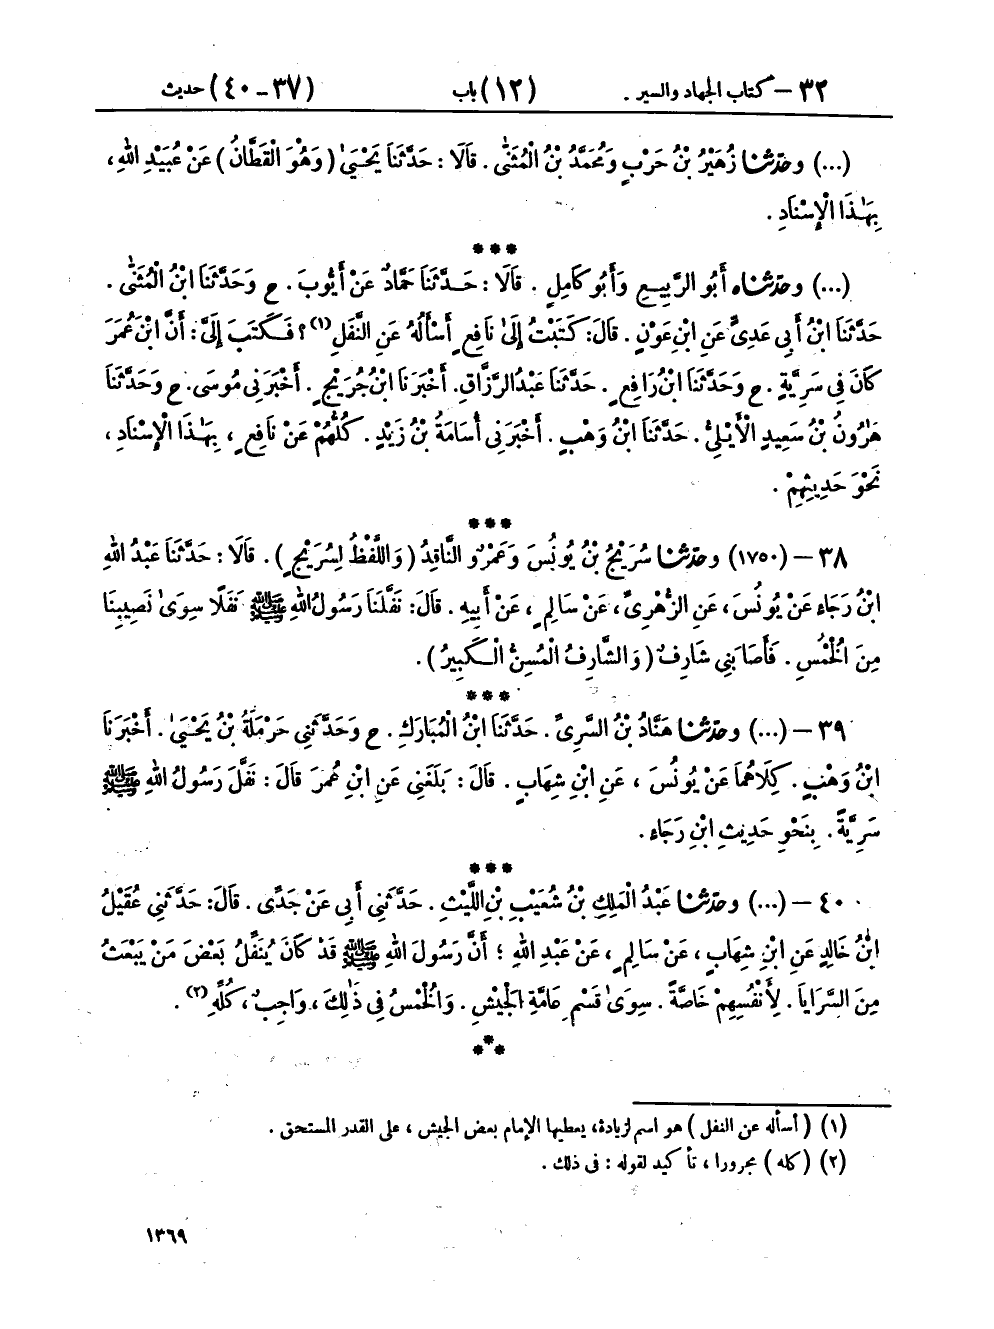 ٣٢ – كتاب الجهاد والسير . (١٢) باب (٣٧-٤٠) حديث
(...) وحَدَّثَنَا زُهَيْرُ بْنُ حَرْبٍ وَمُحَمَّدُ بْنُ الْمُثَنَّىٰ . قَالَا : حَدَّثَنَا يَحْيَىٰ (وَهُوَ الْقَطَّانُ) عَنْ عُبَيْدِ اللهِ ،
بِهَـٰذَا الْإِسْنَادِ .
***
(...) وحَدَّثَنَاه أَبُو الرَّبِيعِ وَأَبُو كَامِلٍ . قَالَا : حَدَّثَنَا حَمَّادٌ عَنْ أَيُّوبَ . ح وَحَدَّثَنَا ابْنُ الْمُثَنَّىٰ .
حَدَّثَنَا ابْنُ أَبِي عَدِىٍّ عَنِ ابْنِ عَوْنٍ . قَالَ: كَتَبْتُ إِلَىٰ نَافِعٍ أَسْأَلُهُ عَنِ النَّفَلِ(١) ؟ فَكَتَبَ إِلَىَّ : أَنَّ ابْنَ عُمَرَ
كَانَ فِي سَرِيَّةٍ . ح وَحَدَّثَنَا ابْنُ رَافِعٍ . حَدَّثَنَا عَبْدُ الرَّزَّاقِ. أَخْبَرَنَا ابْنُ جُرَيْجٍ . أَخْبَرَنِي مُوسَى. ح وَحَدَّثَنَا
هَـٰرُونُ بْنُ سَعِيدٍ الْأَيْلِيُّ . حَدَّثَنَا ابْنُ وَهْبٍ . أَخْبَرَنِي أُسَامَةُ بْنُ زَيْدٍ . كُلُّهُمْ عَنْ نَافِعٍ ، بِهَـٰذَا الْإِسْنَادِ ،
نَحْوَ حَدِيثِهِمْ .
***
٣٨ – (١٧٥٠) وحَدَّثَنَا سُرَيْجُ بْنُ يُونُسَ وَعَمْرٌو النَّاقِدُ (وَاللَّفْظُ لِسُرَيْجٍ) . قَالَا : حَدَّثَنَا عَبْدُ اللهِ
ابْنُ رَجَاءٍ عَنْ يُونُسَ ، عَنِ الزُّهْرِىِّ ، عَنْ سَالِمٍ ، عَنْ أَبِيهِ . قَالَ: نَفَّلَنَا رَسُولُ اللهِ ﷺ نَفَلًا سِوَىٰ نَصِيبِنَا
مِنَ الْخُمُسِ . فَأَصَابَنِي شَارِفٌ (وَالشَّارِفُ الْمُسِنُّ الْـكَبِيرُ) .
***
٣٩ – (...) وحَدَّثَنَا هَنَّادُ بْنُ السَّرِىِّ . حَدَّثَنَا ابْنُ الْمُبَارَكِ . ح وَحَدَّثَنِي حَرْمَلَةُ بْنُ يَحْيَىٰ . أَخْبَرَنَا
ابْنُ وَهْبٍ . كِلَاهُمَا عَنْ يُونُسَ ، عَنِ ابْنِ شِهَابٍ . قَالَ : بَلَغَنِي عَنِ ابْنِ عُمَرَ قَالَ : نَفَّلَ رَسُولُ اللهِ ﷺ
سَرِيَّةً . بِنَحْوِ حَدِيثِ ابْنِ رَجَاءٍ .
***
٤٠ – (...) وحَدَّثَنَا عَبْدُ الْمَلِكِ بْنُ شُعَيْبِ بْنِ اللَّيْثِ . حَدَّثَنِي أَبِي عَنْ جَدِّى . قَالَ: حَدَّثَنِي عُقَيْلُ
ابْنُ خَالِدٍ عَنِ ابْنِ شِهَابٍ ، عَنْ سَالِمٍ ، عَنْ عَبْدِ اللهِ ؛ أَنَّ رَسُولَ اللهِ ﷺ قَدْ كَانَ يُنَفِّلُ بَعْضَ مَنْ يَبْعَثُ
مِنَ السَّرَايَا . لِأَنْفُسِهِمْ خَاصَّةً . سِوَىٰ قَسْمِ عَامَّةِ الْجَيْشِ . وَالْخُمْسُ فِي ذَٰلِكَ ، وَاجِبٌ ، كُلِّهِ(٢) .
***
(١) (أسأله عن النفل) هو اسم لزيادة، يعطيها الإمام بعض الجيش ، على القدر المستحق .
(٢) (كله) مجرورا ، تأكيد لقوله : فى ذلك .
١٣٦٩